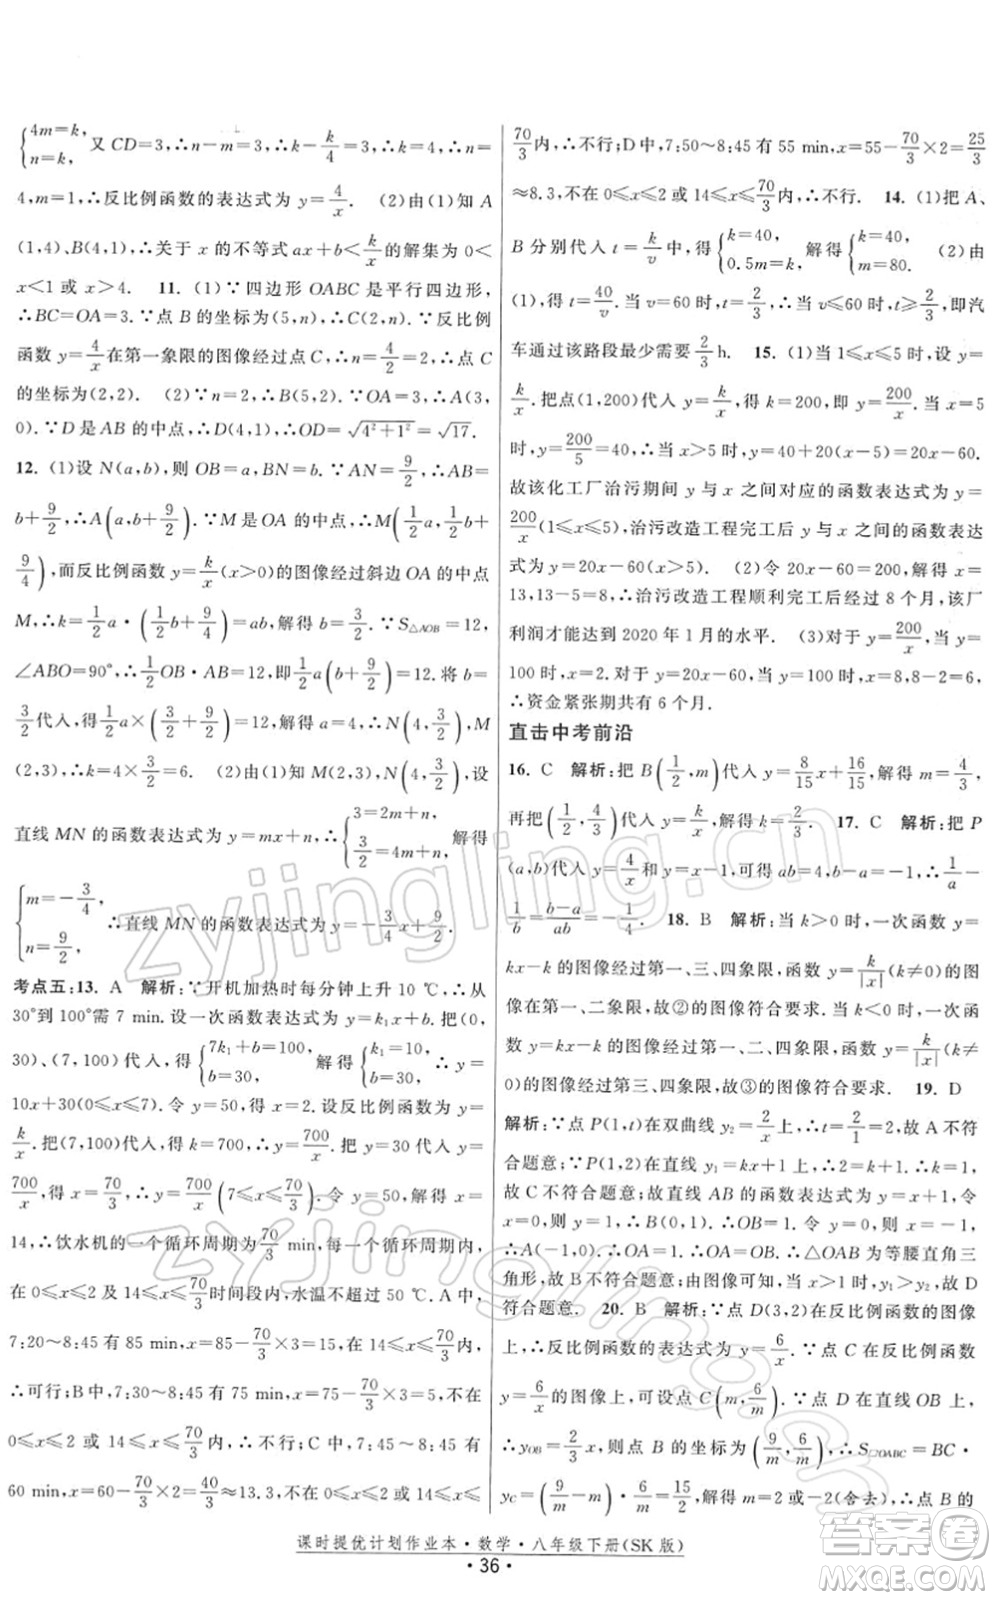 {4m=k, n=k, 又 CD=3,∴n−m=3,∴k−k/4=3,∴k=4,∴n=
4,m=1,∴反比例函数的表达式为 y=4/x. (2)由(1)知 A
(1,4),B(4,1),∴关于 x 的不等式 ax+b<k/x的解集为 0<
x<1 或 x>4. 11. (1)∵四边形 OABC 是平行四边形,
∴BC=OA=3.∵点 B 的坐标为(5,n),∴C(2,n).∵反比例
函数 y=4/x在第一象限的图像经过点 C,∴n=4/2=2,∴点 C
的坐标为(2,2). (2)∵n=2,∴B(5,2).∵OA=3,∴A(3,
0).∵D 是 AB 的中点,∴D(4,1),∴OD=√(4²+1²)=√17.
12. (1)设 N(a,b),则 OB=a,BN=b.∵AN=9/2,∴AB=
b+9/2,∴A(a,b+9/2).∵M 是 OA 的中点,∴M(1/2a,1/2b+
9/4),而反比例函数 y=k/x(x>0)的图像经过斜边 OA 的中点
M,∴k=1/2a·(1/2b+9/4)=ab,解得 b=3/2.∵S△AOB=12,
∠ABO=90°,∴1/2OB·AB=12,即1/2a(b+9/2)=12.将 b=
3/2代入,得1/2a×(3/2+9/2)=12,解得 a=4,∴N(4,3/2),M
(2,3),∴k=4×3/2=6. (2)由(1)知 M(2,3),N(4,3/2),设
直线 MN 的函数表达式为 y=mx+n,∴{3=2m+n, 3/2=4m+n, 解得
{m=−3/4, n=9/2, ∴直线 MN 的函数表达式为 y=−3/4x+9/2.
考点五:13. A 解析:∵开机加热时每分钟上升 10 ℃,∴从
30°到 100°需 7 min.设一次函数表达式为 y=k₁x+b.把(0,
30)、(7,100)代入,得{7k₁+b=100, b=30, 解得{k₁=10, b=30, ∴y=
10x+30(0≤x≤7).令 y=50,得 x=2.设反比例函数表达式为 y=
k/x.把(7,100)代入,得 k=700,∴y=700/x.把 y=30 代入 y=
700/x,得 x=70/3,∴y=700/x(7≤x≤70/3).令 y=50,解得 x=
14,∴饮水机的一个循环周期为70/3 min,每一个循环周期内,
在 0≤x≤2 及 14≤x≤70/3时间段内,水温不超过 50℃.A 中,
7:20～8:45 有 85 min,x=85−70/3×3=15,在 14≤x≤70/3内,
∴可行;B 中,7:30～8:45 有 75 min,x=75−70/3×3=5,不在
0≤x≤2 或 14≤x≤70/3内,∴不行;C 中,7:45～8:45 有
60 min,x=60−70/3×2=40/3≈13.3,不在 0≤x≤2 或 14≤x≤
70/3内,∴不行;D 中,7:50～8:45 有 55 min,x=55−70/3×2=25/3
≈8.3,不在 0≤x≤2 或 14≤x≤70/3内,∴不行. 14. (1)把 A、
B 分别代入 t=k/v中,得{k=40, 0.5m=k, 解得{k=40, m=80. (2)由
(1),得 t=40/v.当 v=60 时,t=2/3,∴当 v≤60 时,t≥2/3,即汽
车通过该路段最少需要2/3h. 15. (1)当 1≤x≤5 时,设 y=
k/x.把点(1,200)代入 y=k/x,得 k=200,即 y=200/x.当 x=5
时,y=200/5=40,∴当 x>5 时,y=40+20(x−5)=20x−60.
故该化工厂治污期间 y 与 x 之间对应的函数表达式为 y=
200/x(1≤x≤5),治污改造工程完工后 y 与 x 之间的函数表达
式为 y=20x−60(x>5). (2)令 20x−60=200,解得 x=
13,13−5=8,∴治污改造工程顺利完工后经过 8 个月,该厂
利润才能达到 2020 年 1 月的水平. (3)对于 y=200/x,当 y=
100 时,x=2.对于 y=20x−60,当 y=100 时,x=8,8−2=6,
∴资金紧张期共有 6 个月.
直击中考前沿
16. C 解析:把 B(1/2,m)代入 y=8/15x+16/15,解得 m=4/3,
再把(1/2,4/3)代入 y=k/x,解得 k=2/3. 17. C 解析:把 P
(a,b)代入 y=4/x和 y=x−1,可得 ab=4,b=a−1,∴1/a−
1/b=(b−a)/ab=−1/4. 18. B 解析:当 k>0 时,一次函数 y=
kx−k 的图像经过第一、三、四象限,函数 y=k/|x|(k≠0)的图
像在第一、二象限,故②的图像符合要求.当 k<0 时,一次函
数 y=kx−k 的图像经过第一、二、四象限,函数 y=k/|x|(k≠
0)的图像经过第三、四象限,故③的图像符合要求. 19. D
解析:∵点 P(1,t)在双曲线 y₂=2/x上,∴t=2/1=2,故 A 不符
合题意;∵P(1,2)在直线 y₁=kx+1 上,∴2=k+1,∴k=1,
故 C 不符合题意;故直线 AB 的函数表达式为 y=x+1,令
x=0,则 y=1,∴B(0,1),∴OB=1.令 y=0,则 x=−1,
∴A(−1,0),∴OA=1,∴OA=OB,∴△OAB 为等腰直角三
角形,故 B 不符合题意;由图像可知,当 x>1 时,y₁>y₂,故 D
符合题意. 20. B 解析:∵点 D(3,2)在反比例函数的图像
上,∴反比例函数的表达式为 y=6/x.∵点 C 在反比例函数
y=6/x的图像上,可设点 C(m,6/m).∵点 D 在直线 OB 上,
∴y_OB=2/3x,则点 B 的坐标为(9/m,6/m),∴S▱OABC=BC·
y_C=(9/m−m)·6/m=15/2,解得 m=2 或 m=−2(舍去),∴点 B 的
课时提优计划作业本·数学·八年级下册(SK 版)
·36·
zyjingling.cn
zyjingling.cn
答案圈
MXQE.COM